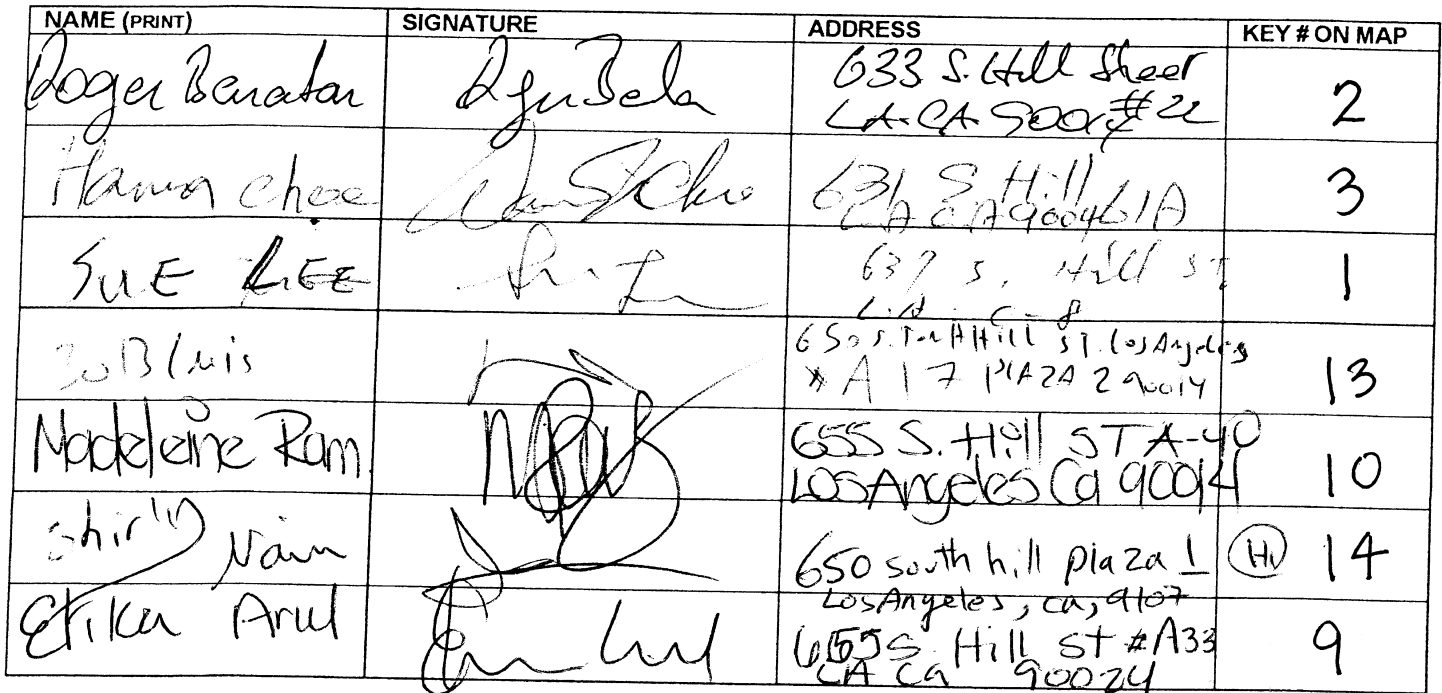 NAME (PRINT) SIGNATURE ADDRESS KEY # ON MAP
Roger Benaton 633 S. Hill Street
LA-CA 90014 #22 2
Hanna choe 631 S. Hill
LA CA 90014 61A 3
SUE LEE 637 S. Hill ST
L.A. 1
Luis 650 S. Hill ST. Los Angeles
A 17 PLAZA 2 90014 13
Madeleine Ram 655 S. Hill ST A-40
LOS Angeles Ca 90014 10
Shirly Naim 650 south hill plaza 1
Los Angeles, ca, 9107 14
Erika Arul 655 S. Hill St #A33
LA Ca 90024 9